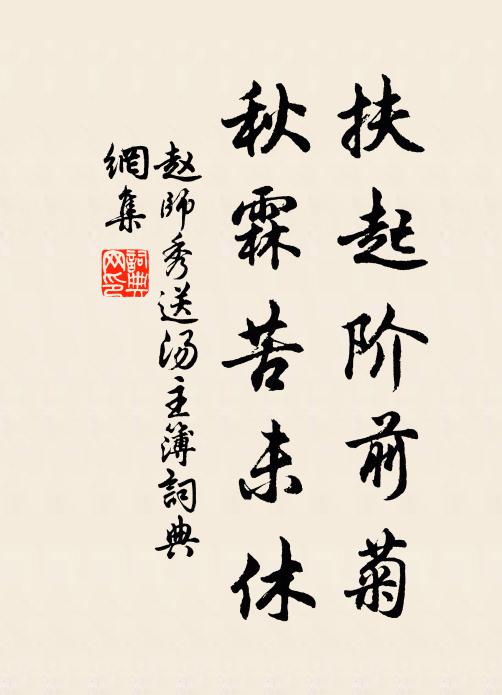 扶起阶前菊
秋霖苦未休
赵师秀送汤主簿詞典
網集
詞典
网印